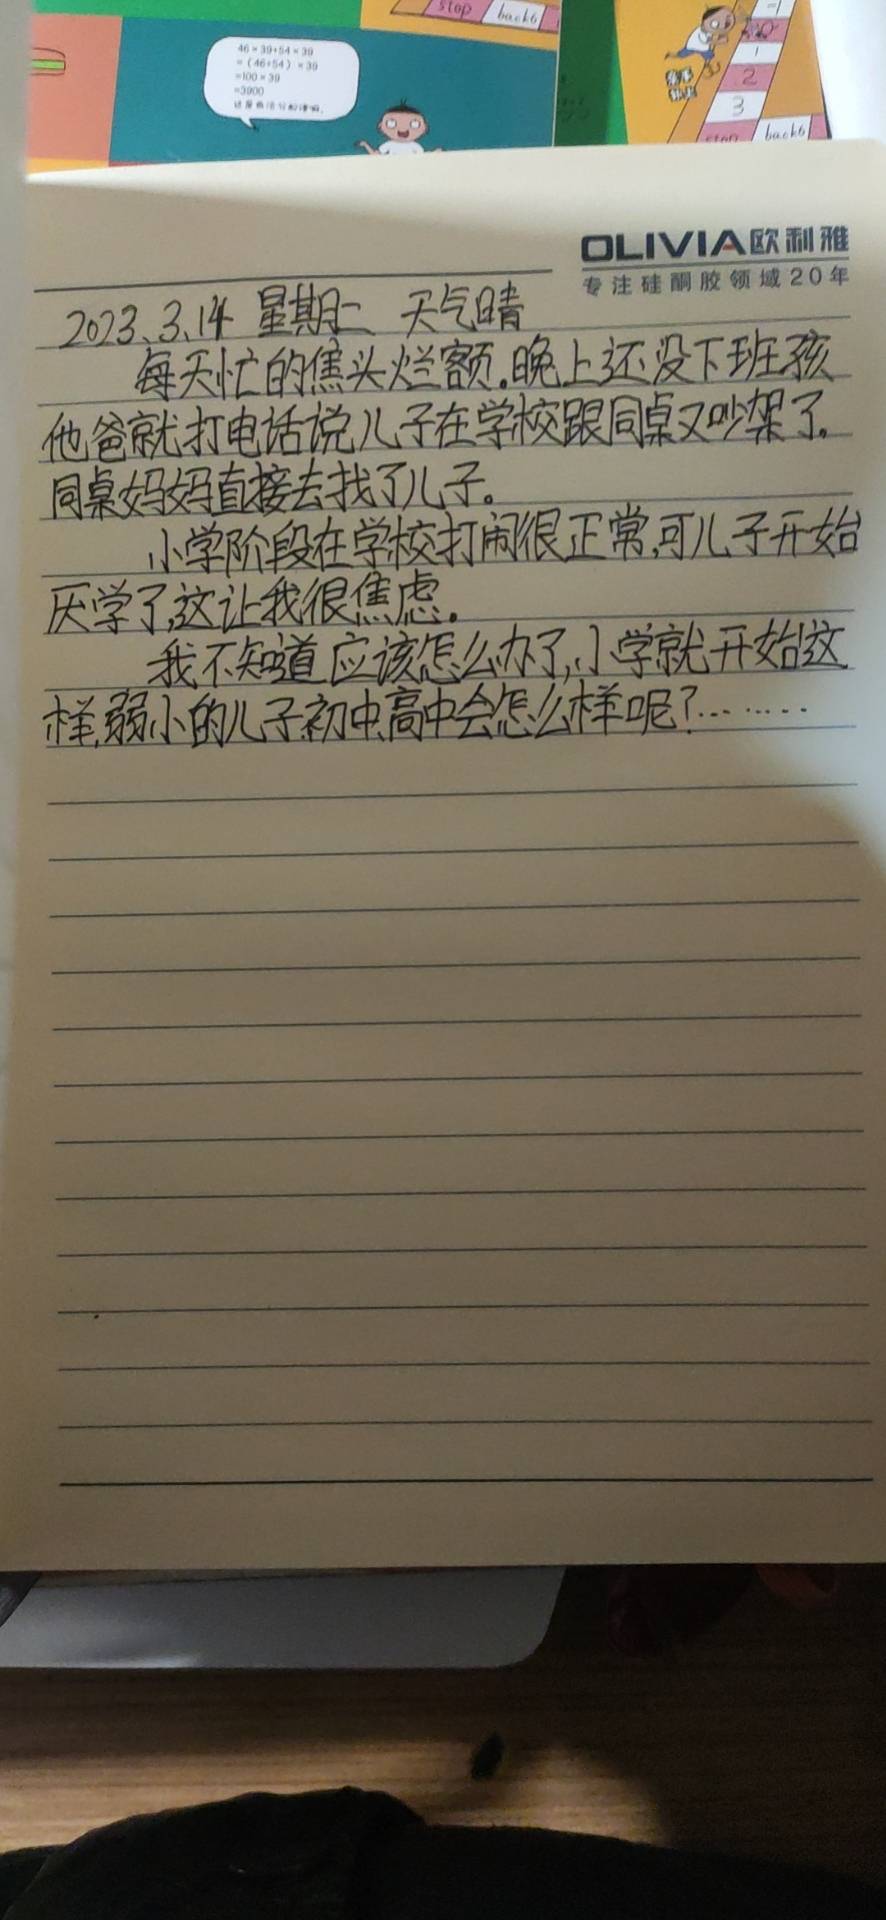 stop back6
46×39+54×39
=(46+54)×39
=100×39
=3900
这是乘法分配律啊。
1
2
3
stop back6
OLIVIA欧利雅
专注硅酮胶领域20年
2023、3、14 星期二 天气晴
每天忙的焦头烂额。晚上还没下班孩
他爸就打电话说儿子在学校跟同桌又吵架了。
同桌妈妈直接去找了儿子。
小学阶段在学校打闹很正常,可儿子开始
厌学了,这让我很焦虑。
我不知道应该怎么办了,小学就开始这
样,弱小的儿子初中、高中会怎么样呢?………